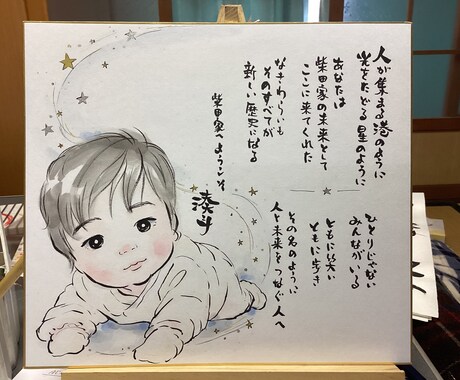 人が集まる港のように
光をたどる星のように
あなたは
柴田家の未来として
ここに来てくれた
なきわらいも
そのすべてが
新しい歴史になる
柴田家へようこそ
湊斗
ひとりじゃない
みんながいる
ともに笑い
ともに歩き
その名のように
人と未来をつなぐ人へ